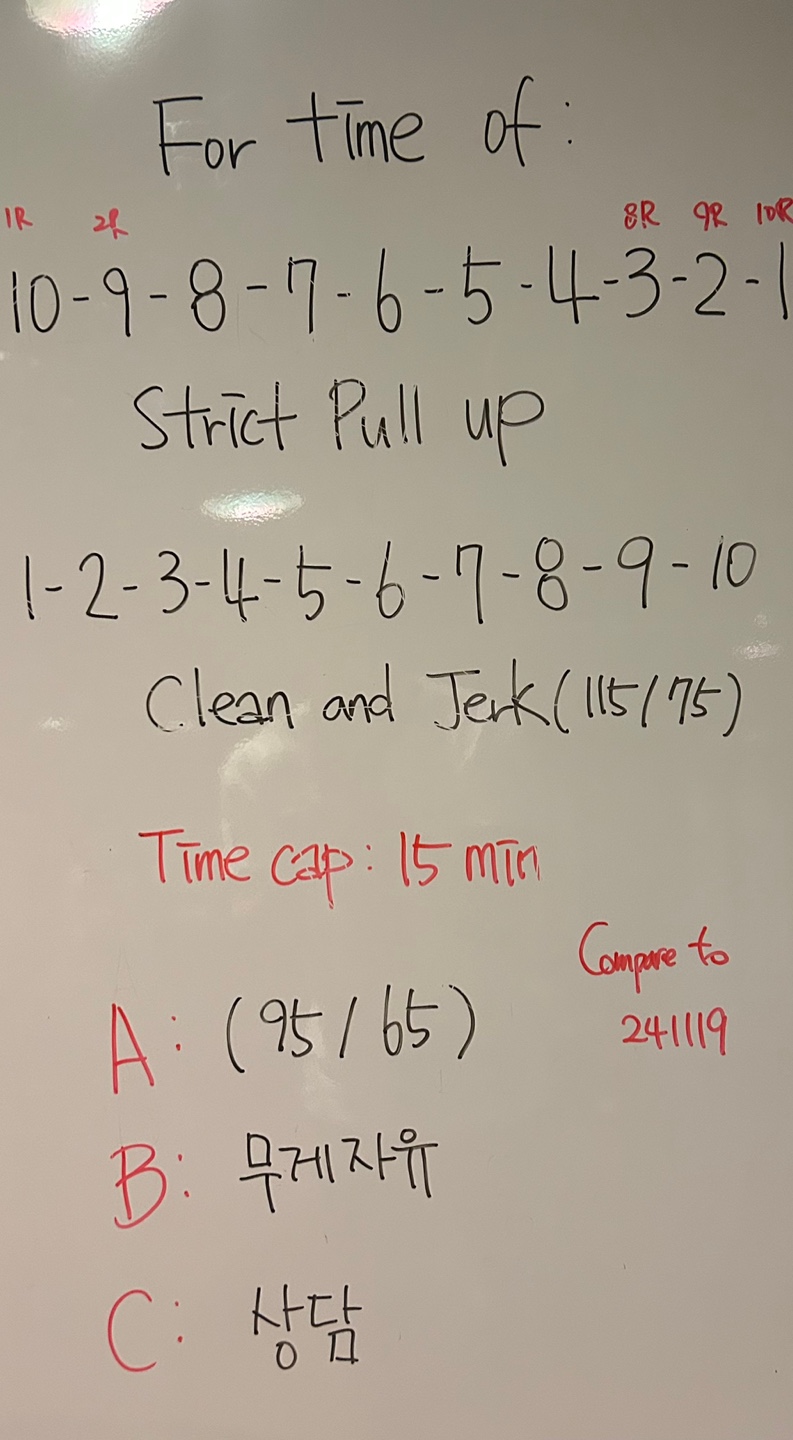 For time of:
1R 2R 8R 9R 10R
10-9-8-7-6-5-4-3-2-1
Strict Pull up
1-2-3-4-5-6-7-8-9-10
Clean and Jerk (115/75)
Time cap: 15 min
Compare to
241119
A: (95/65)
B: 무게자유
C: 상담